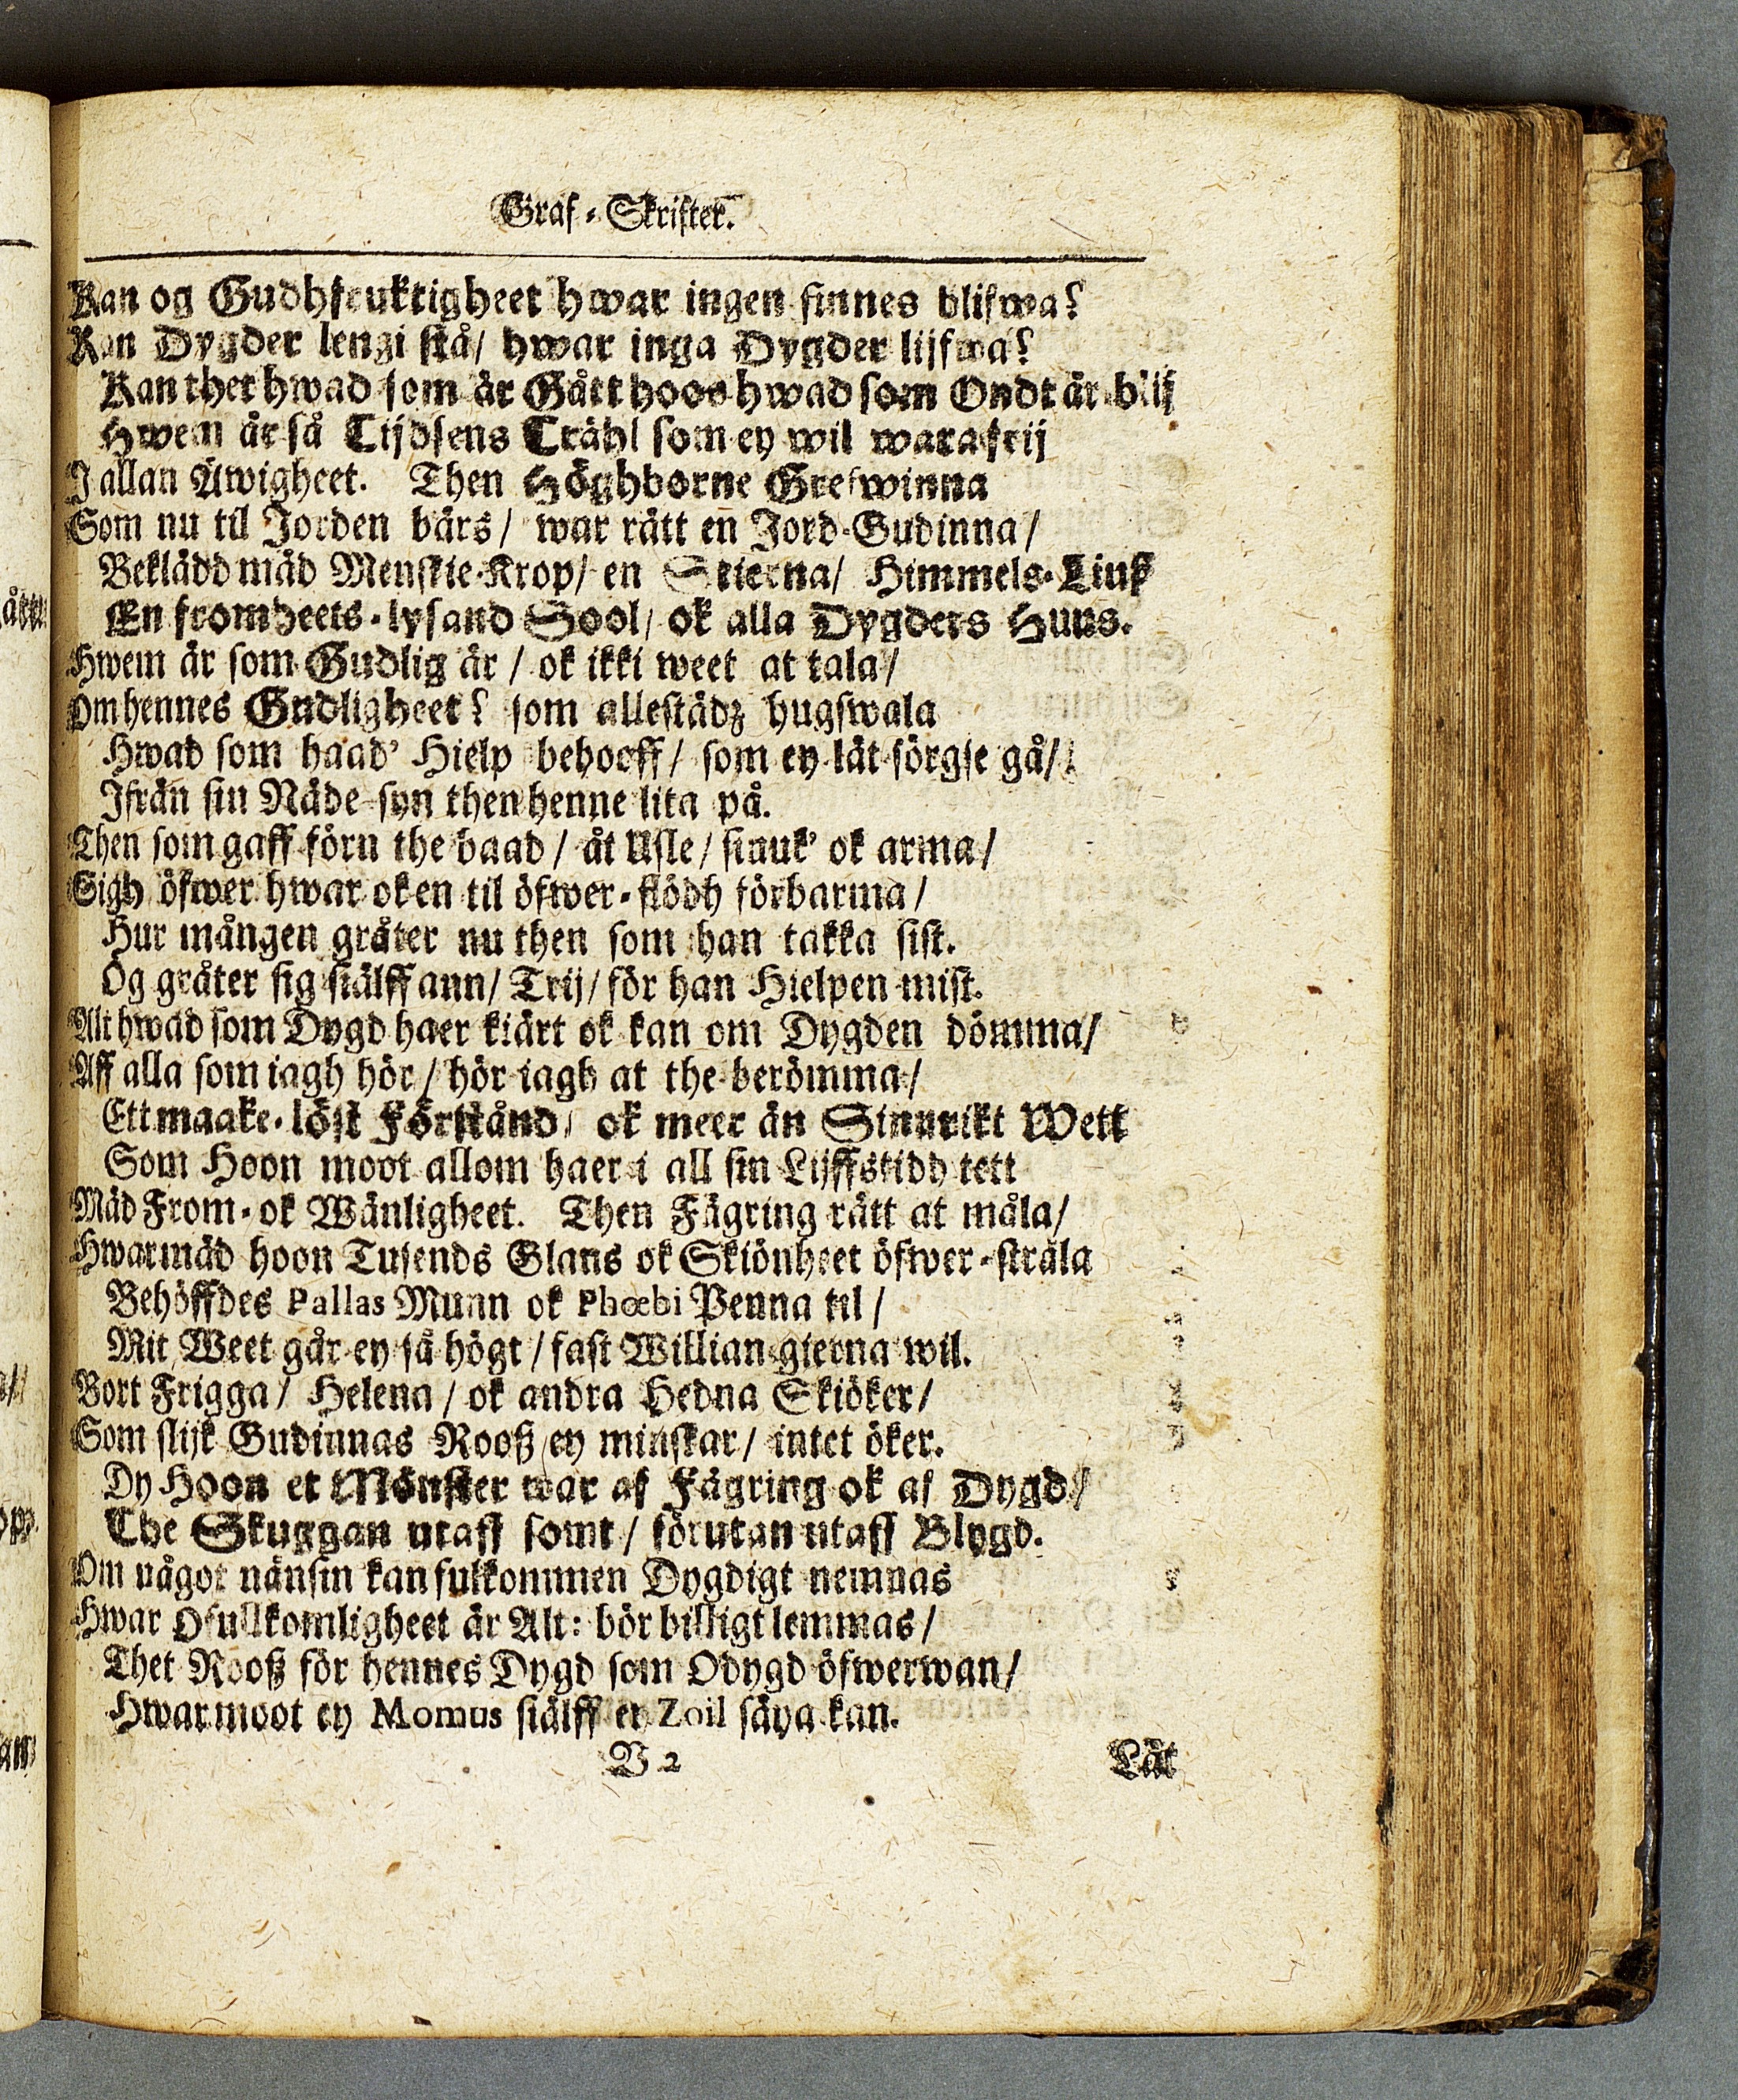 Graf-Skrifter.
Kan og Gudhfruktigheet hwar ingen finnes blifwa?
Kan Dygder lengi stå/ hwar inga Dygder lijfwa?
Kan thet hwad som är Gått hoos hwad som Ondt är blij
Hwem är så Tijdsens Trähl som ey wil wara frij
I allan Äwigheet. Then Höghborne Grefwinna
Som nu til Jorden bärs/ war rätt en Jord-Gudinna/
Beklädd mäd Menskie-Krop/ en Stierna/ Himmels-Lius
En fromheets-lysand Sool/ ok alla Dygders Huus.
Hwem är som Gudlig är/ ok ikki weet at tala/
Om hennes Gudligheet? som allestädz hugswala
Hwad som haad' Hielp behooff/ som ey lät sörgse gå/
Ifrån sin Nåde-syn then henne lita på.
Then som gaff förn the baad/ åt Usle/ siuuk' ok arma/
Sigh öfwer hwar ok en til öfwer-flödh förbarma/
Hur mången gråter nu then som han takka sist.
Og gråter sig siälff ann/ Trij/ för han Hielpen mist.
Alt hwad som Dygd haer kiärt ok kan om Dygden dömma/
Aff alla som iagh hör/ hör iagh at the berömma/
Ett maake-löst Förstånd/ ok meer än Sinnrikt Wett
Som Hoon moot allom haer i all sin Lijffstidh tett
Mäd From-ok Wänligheet. Then Fägring rätt at måla/
Hwarmäd hoon Tusends Glans ok Skiönheet öfwer-stråla
Behöffdes Pallas Munn ok Phœbi Penna til/
Mit Weet går ey så högt/ fast Willian gierna wil.
Bort Frigga/ Helena/ ok andra Hedna Skiöker/
Som slijk Gudinnas Rooß ey minskar/ intet öker.
Dy Hoon et Mönster war af Fägring ok af Dygd/
The Skuggan utaff somt/ förutan utaff Blygd.
Om något nånsin kan fulkommen Dygdigt nemnas
Hwar Ofullkomligheet är Alt: bör billigt lemmas/
Thet Rooß för hennes Dygd som Odygd öfwerwan/
Hwarmoot ey Momus siälff ey Zoil säya kan.
V 2
Låt